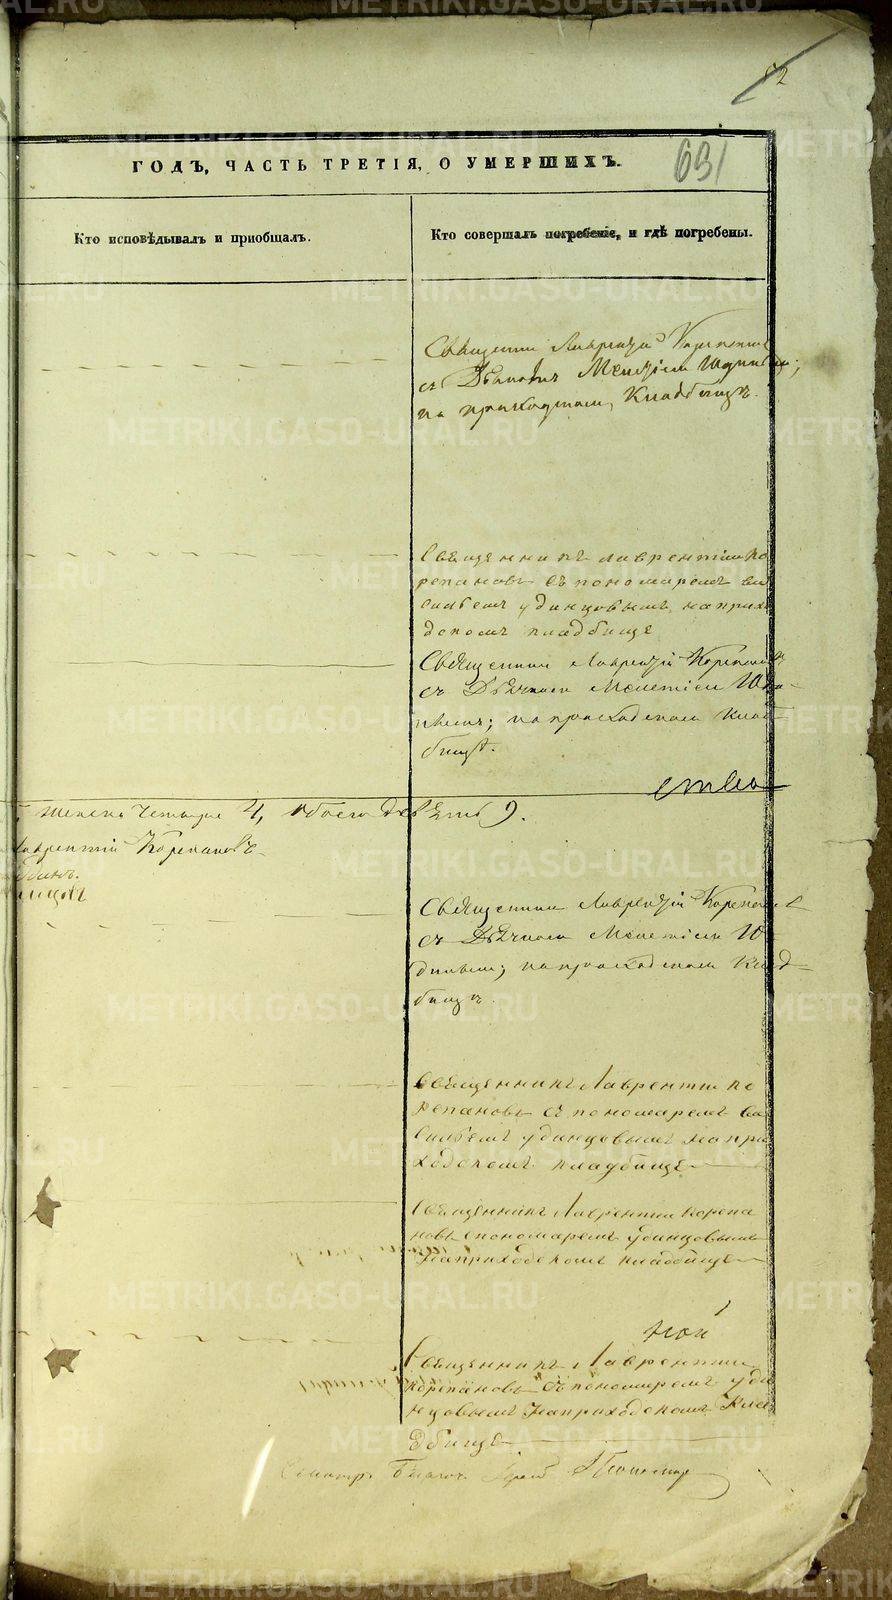 52
ГОДЪ, ЧАСТЬ ТРЕТІЯ, О УМЕРШИХЪ.
631
Кто исповѣдывалъ и приобщалъ.
Кто совершалъ погребеніе, и гдѣ погребены.
Священникъ Лаврентій Корепановъ
съ Дьячкомъ Мелетіемъ
на приходскомъ Кладбищѣ.
Священникъ лаврентии ко
репановъ съ пономаремъ ва
силѣемъ удинцовымъ на прихо
дскомъ кладбище
Священникъ Лаврентій Корепановъ
съ Дьячкомъ Мелетіемъ
на приходскомъ Клад
бищѣ.
женска четыре 4, обоего девять 9.
Лаврентій Корепановъ
Священникъ Лаврентій Корепановъ
съ Дьячкомъ Мелетіемъ
на приходскомъ Клад
бищѣ.
Священникъ Лаврентии ко
репановъ съ пономаремъ ва
силѣемъ удинцовымъ на при
ходскомъ кладбище
Священникъ Лаврентии корепа
новъ с пономаремъ удинцовымъ
на приходскомъ кладбище
ной
Священникъ Лаврентии
корепановъ съ пономаремъ уди
нцовымъ на приходскомъ кла
дбище
METRIKI.GASO-URAL.RU